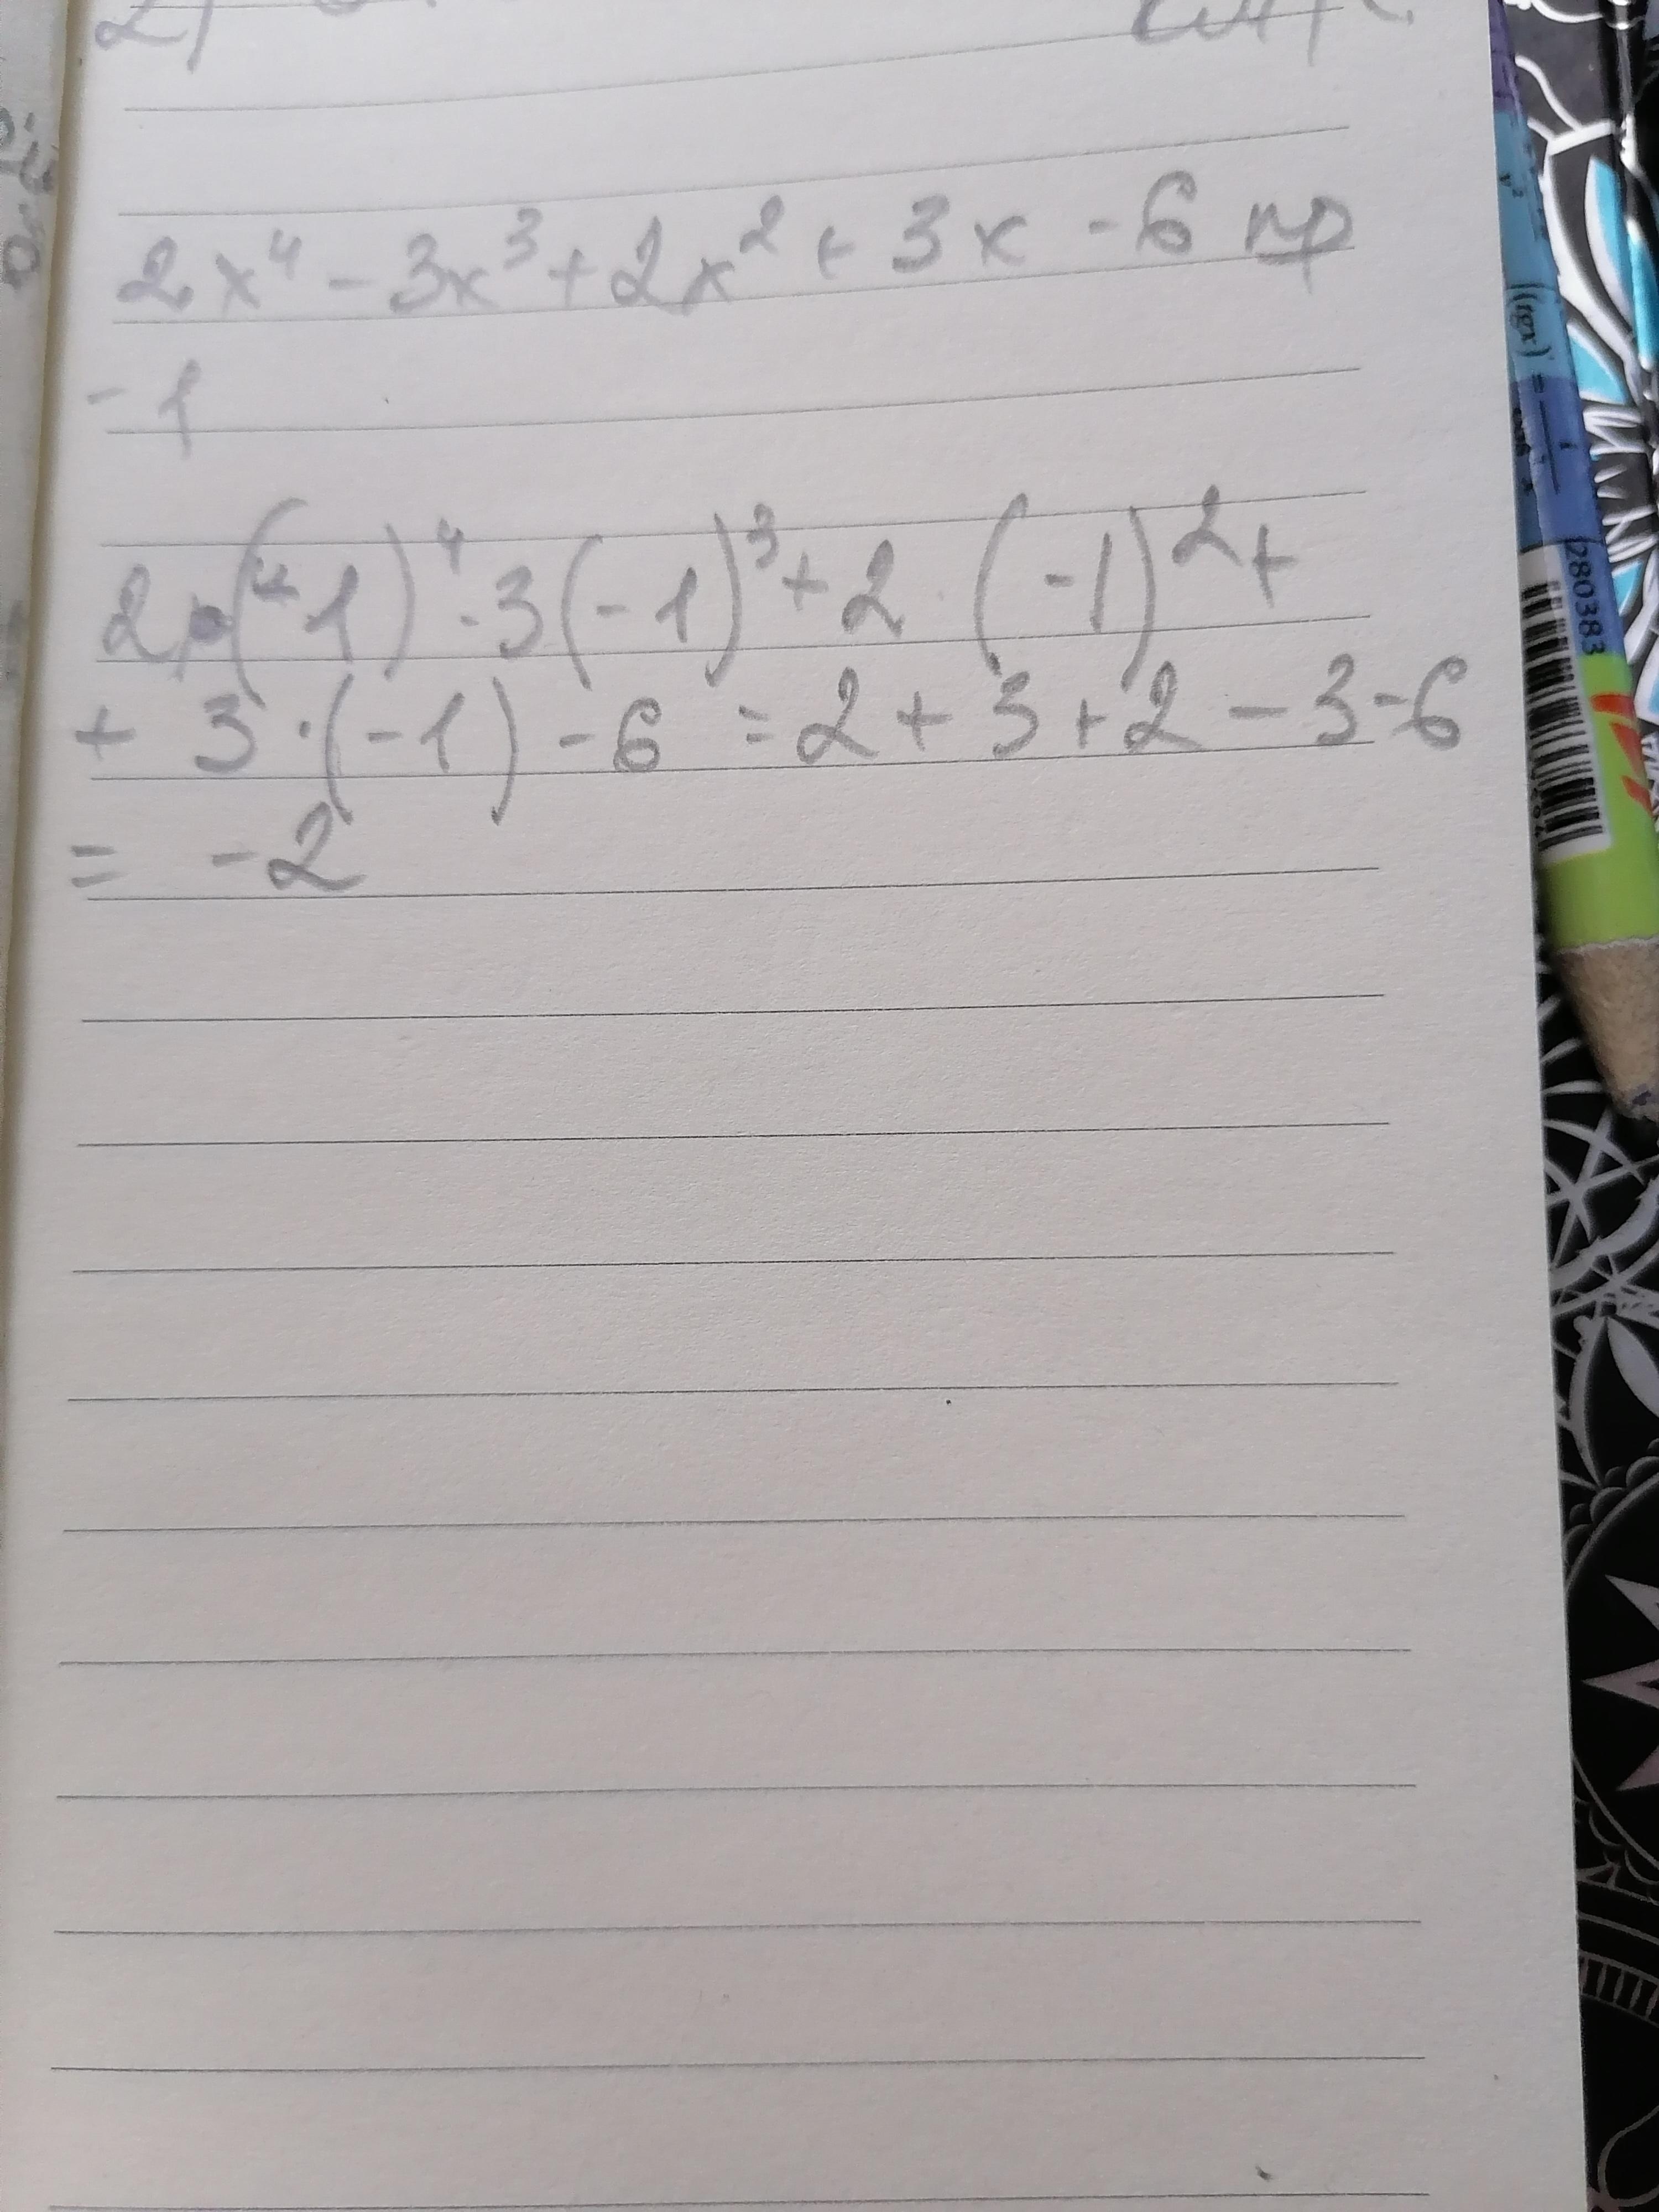 2)
2x⁴ - 3x³ + 2x² + 3x - 6 пр
- 1
2·(-1)⁴ - 3(-1)³ + 2·(-1)² +
+ 3·(-1) - 6 = 2 + 3 + 2 - 3 - 6
= -2
(tgx)' =
280383